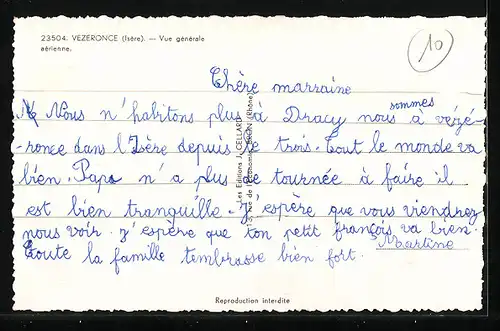 23504. VEZERONCE (Isère). — Vue générale
aérienne.
10
Chère marraine
Nous n'habitons plus à Dracy nous sommes à vézé-
-ronce dans l'Isère depuis le trois. Tout le monde va
bien. Papa n'a plus de tournée à faire il
est bien tranquille. J'espère que vous viendrez
nous voir. J'espère que ton petit françois va bien.
Toute la famille t'embrasse bien fort. Martine
Les Editions J. CELLARD
BRON (Rhône)
Reproduction interdite